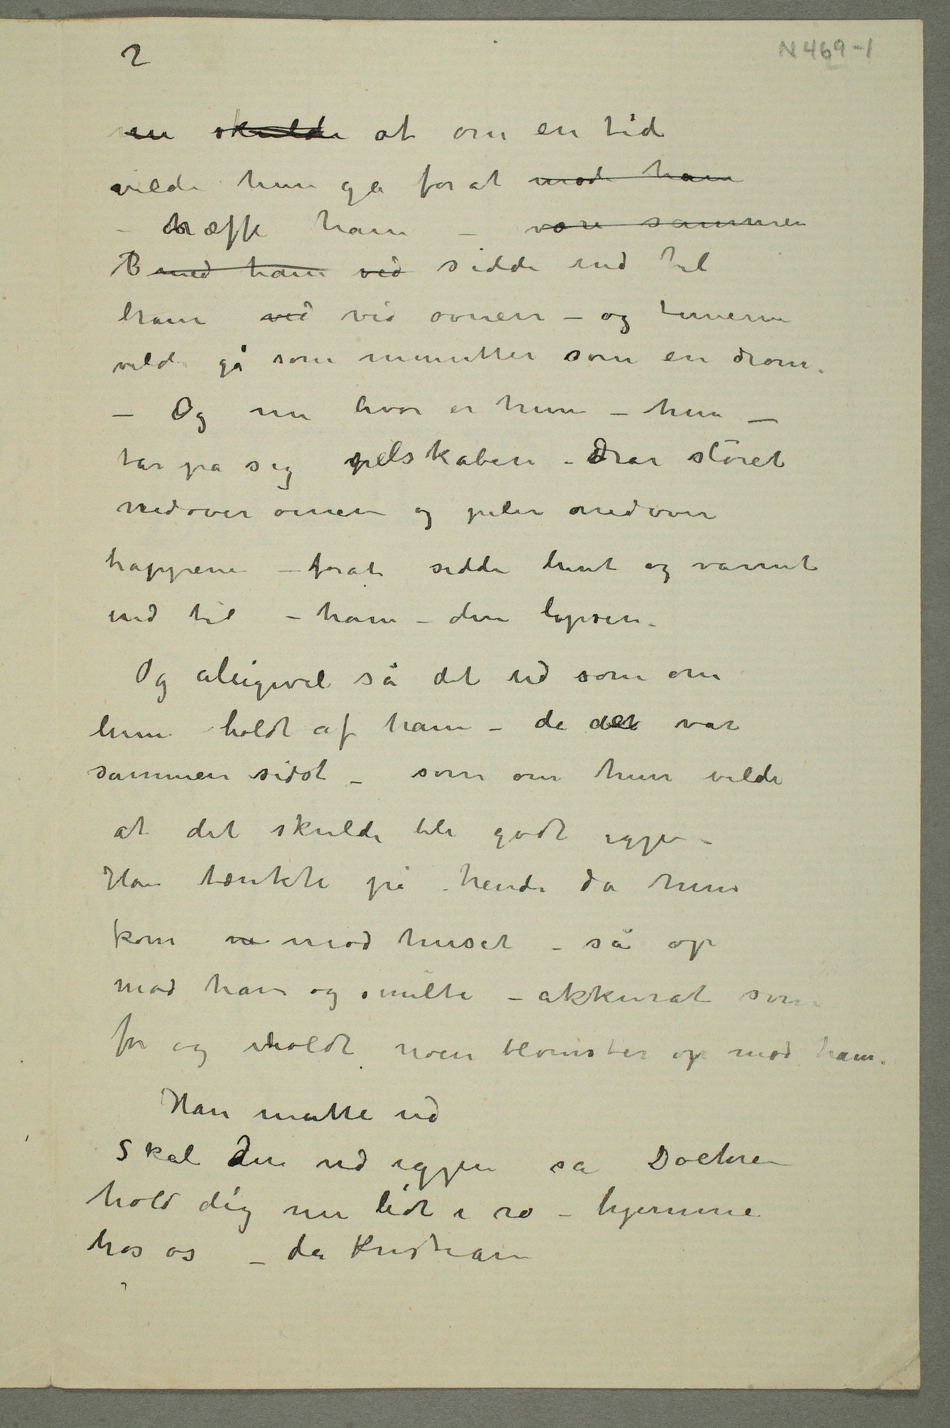 2
N 469-1
en skulde at om en tid
vilde hun gå forat møde ham
– træffe ham – være sammen
med ham ved sidde ind til
ham ved ved ovnen – og timerne
vilde gå som minutter som en drøm.
– Og nu hvor er hun – hun –
tar på sig pelskåben – Drar sløret
nedover øinene og piler nedover
trappene – forat sidde lunt og varmt
ind til – ham – den lapsen.
Og aligevel så det ud som om
hun holdt af ham – da det var
sammen sidst – som om hun vilde
at det skulde bli godt igjen –
Han tænkte på hende da hun
kom mod huset – så op
mod ham og smilte – akkurat som
før og holdt noen blomster op mod ham.
Han måtte ud
Skal du ud igjen sa Doctoren
hold dig nu lidt i ro – hjemme
hos os – da Kristian